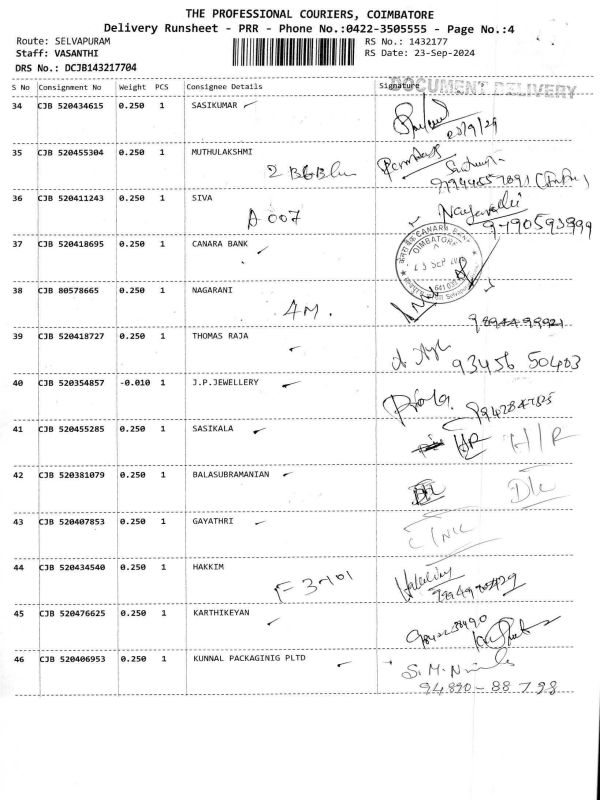 THE PROFESSIONAL COURIERS, COIMBATORE
Delivery Runsheet - PRR - Phone No.:0422-3505555 - Page No.:4
Route: SELVAPURAM RS No.: 1432177
Staff: VASANTHI RS Date: 23-Sep-2024
DRS No.: DCJB143217704
DOCUMENT DELIVERY
S No Consignment No Weight PCS Consignee Details Signature
34 CJB 520434615 0.250 1 SASIKUMAR
35 CJB 520455304 0.250 1 MUTHULAKSHMI
36 CJB 520411243 0.250 1 SIVA
A 007
37 CJB 520418695 0.250 1 CANARA BANK
CANARA BANK
COIMBATORE
38 CJB 80578665 0.250 1 NAGARANI
AM.
39 CJB 520418727 0.250 1 THOMAS RAJA
93456 50403
40 CJB 520354857 -0.010 1 J.P.JEWELLERY
41 CJB 520455285 0.250 1 SASIKALA
H/R
42 CJB 520381079 0.250 1 BALASUBRAMANIAN
43 CJB 520407853 0.250 1 GAYATHRI
44 CJB 520434540 0.250 1 HAKKIM
F 3-101
45 CJB 520476625 0.250 1 KARTHIKEYAN
46 CJB 520406953 0.250 1 KUNNAL PACKAGINIG PLTD
94890-88798